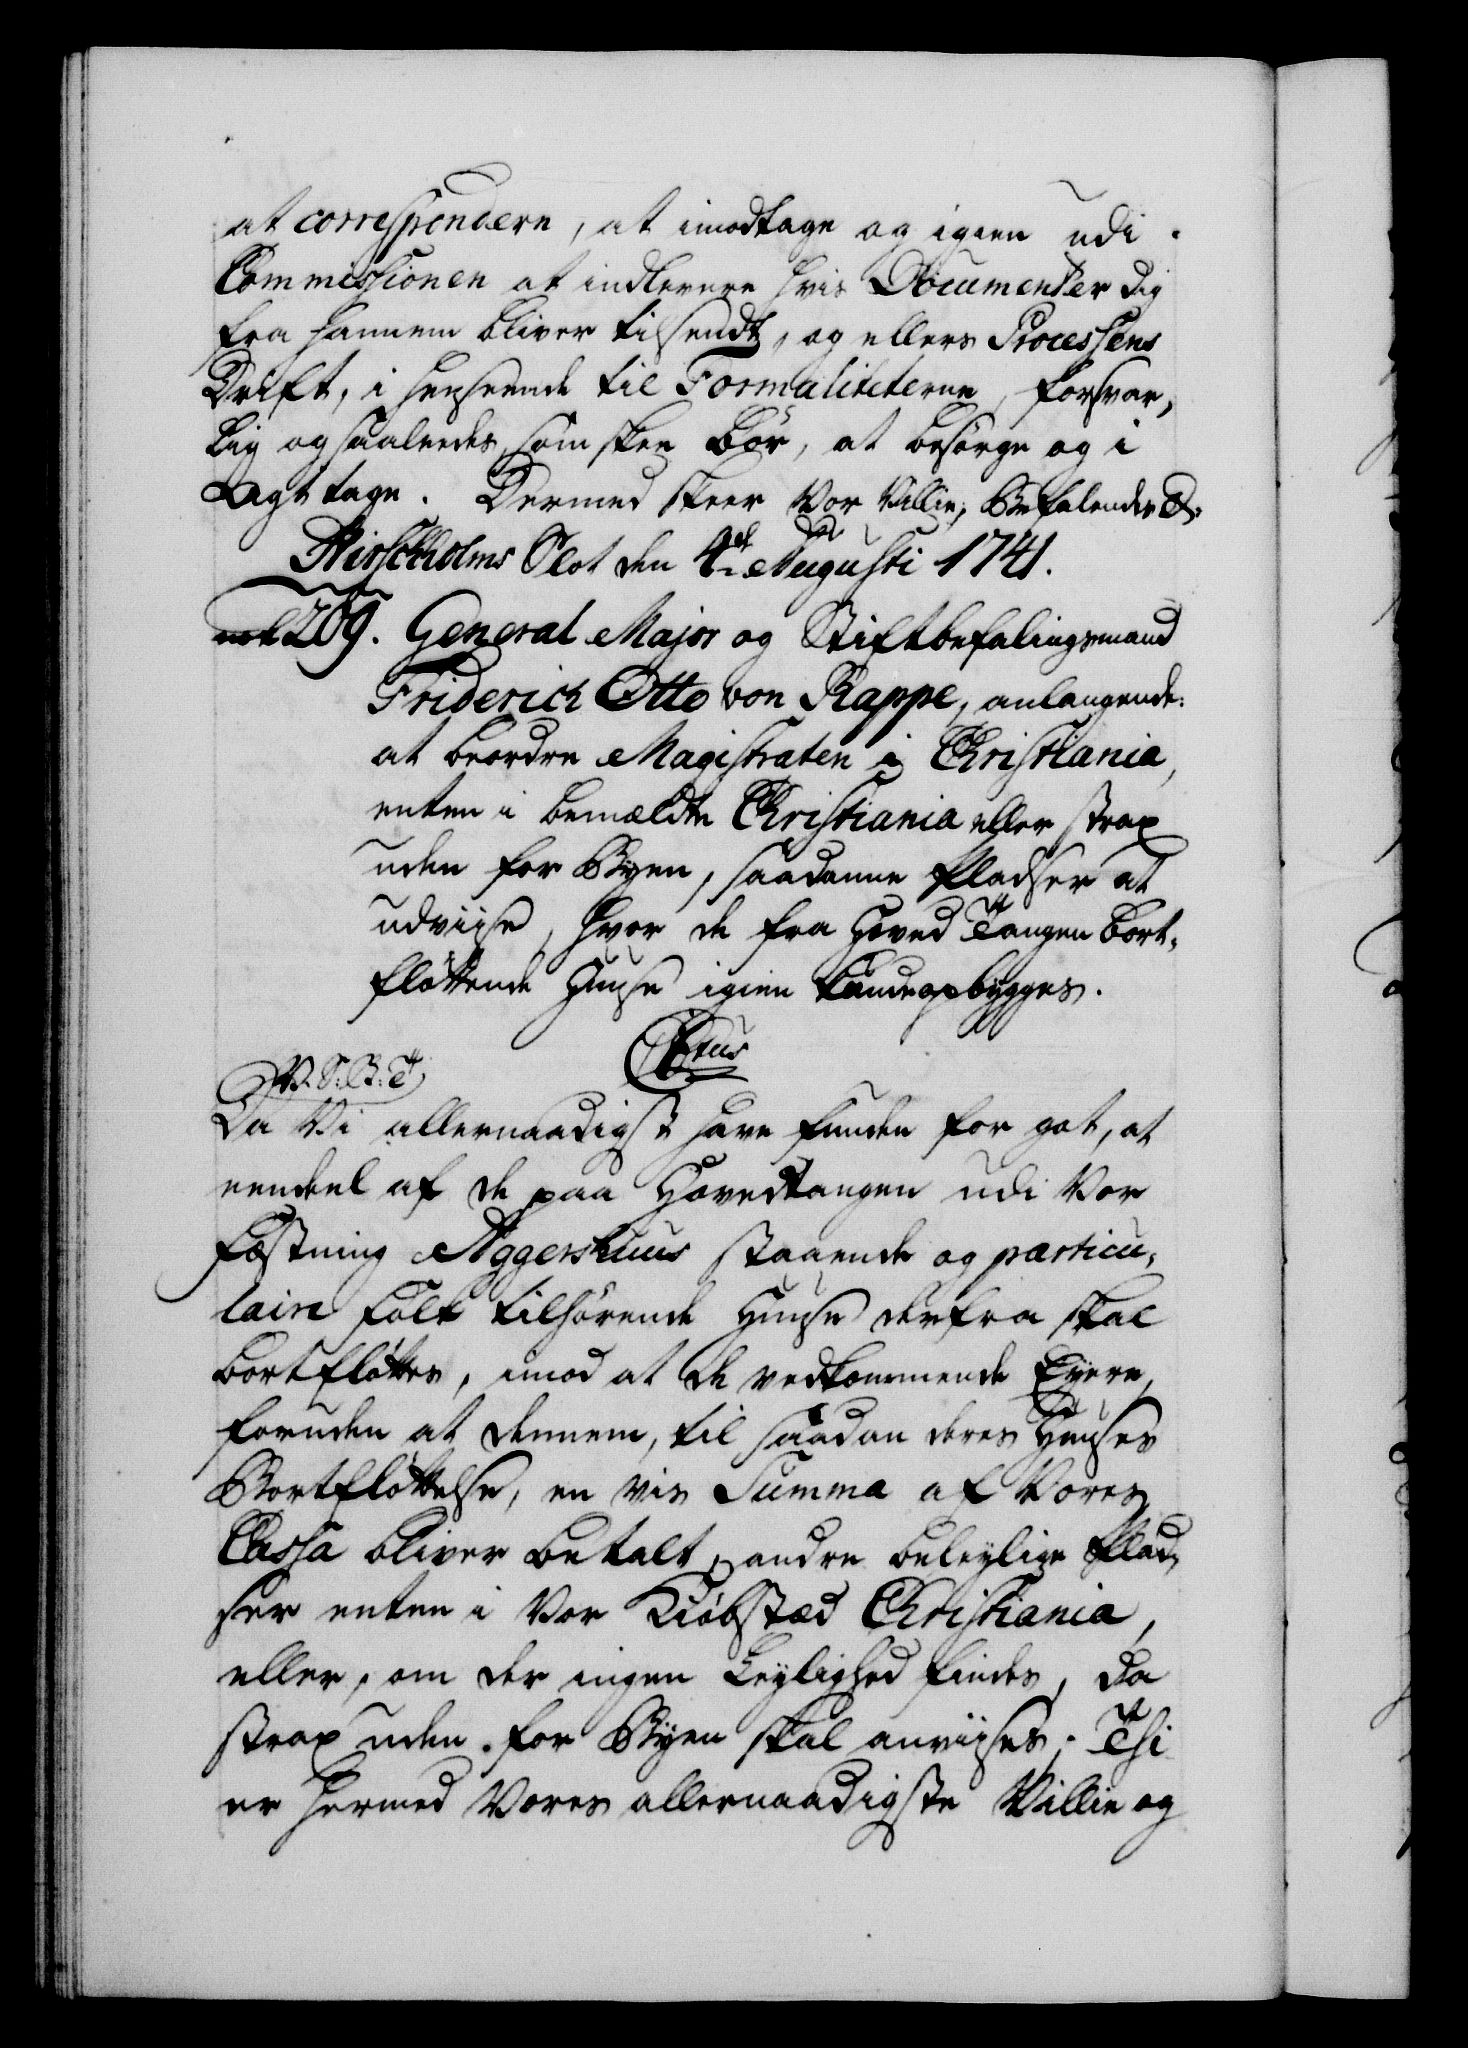 at correspondere, at imodtage og igien udi
Commissionen at indlevere hvis Documenter dig
fra hannem bliver tilsendt, og ellers Processens
Drift, i henseende til Formaliteterne, forsvar,
lig og saaledes, som skee bør, at besørge og i
Agt tage. Dermed skeer Vor Villie, Befalendes &.
Hirschholms Slot den 4de Augusti 1741.
209. General Major og Stiftbefalingsmand
Friderich Otto von Rappe, anlangende:
at beordre Magistraten i Christiania,
enten i bemældte Christiania eller strax
uden for Byen, saadanne Pladser at
udviise, hvor de fra Hoved Tangen bort-
fløttende Huuse igien kunde opbygges.
C6tus
V. S. B. T
Da Vi allernaadigst have funden for got, at
eendeel af de paa Hovedtangen udi Vor
Fæstning Aggershuus staaende og particu-
laire Folk tilhørende Huuse derfra skal
bortfløttes, imod at de vedkommende Eyere,
foruden at dennem, til saadan deres Huuses
Bortfløttelse, en vis Summa af Vores
Cassa bliver betalt, andre beleylige Plad-
ser enten i Vor Kiøbstæd Christiania,
eller, om der ingen Leylighed findes, da
strax uden for Byen skal anviises; Thi
er hermed Vores allernaadigste Villie og